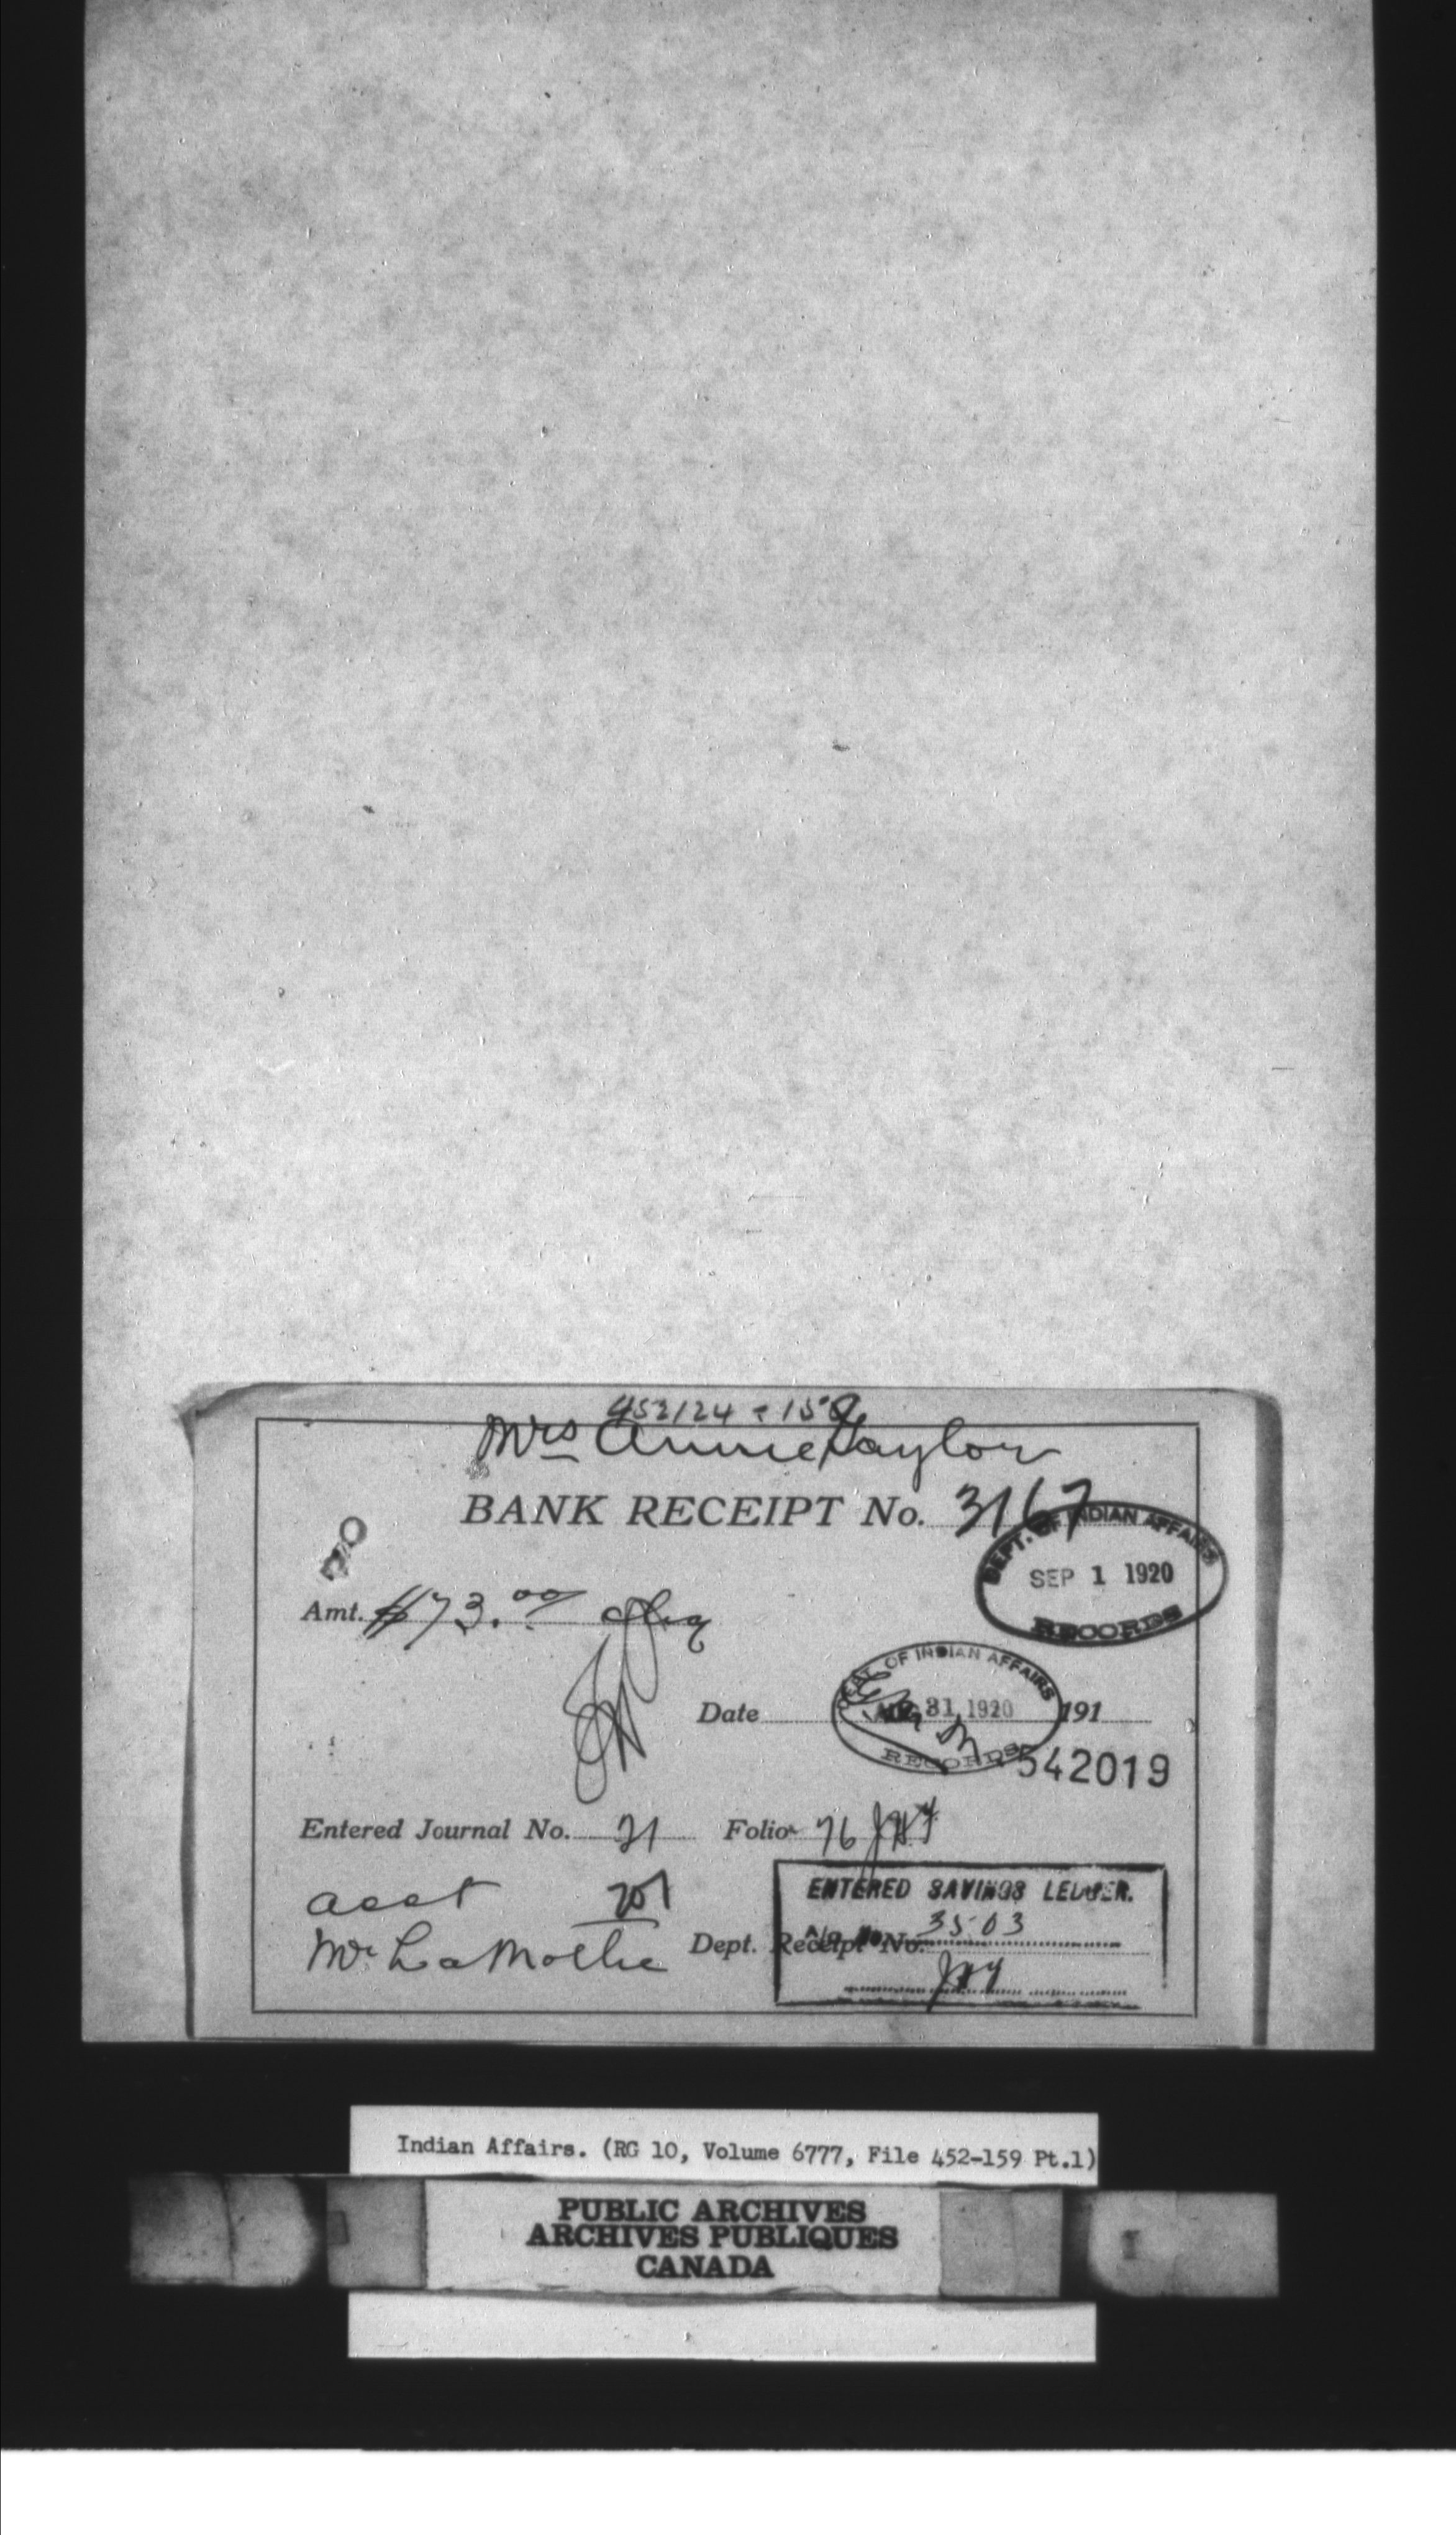 Mrs Annie Taylor
BANK RECEIPT No. 3167
DEPT. OF INDIAN AFFAIRS
SEP 1 1920
RECORDS
Amt. $73.00 chq
DEPT. OF INDIAN AFFAIRS
Date AUG 31 1920 191
RECORDS
542019
Entered Journal No. 21 Folio 76
ENTERED SAVINGS LEDGER.
acct 201
No. 3503
Mr LaMothe Dept. Receipt No.
Indian Affairs. (RG 10, Volume 6777, File 452-159 Pt.1)
PUBLIC ARCHIVES
ARCHIVES PUBLIQUES
CANADA